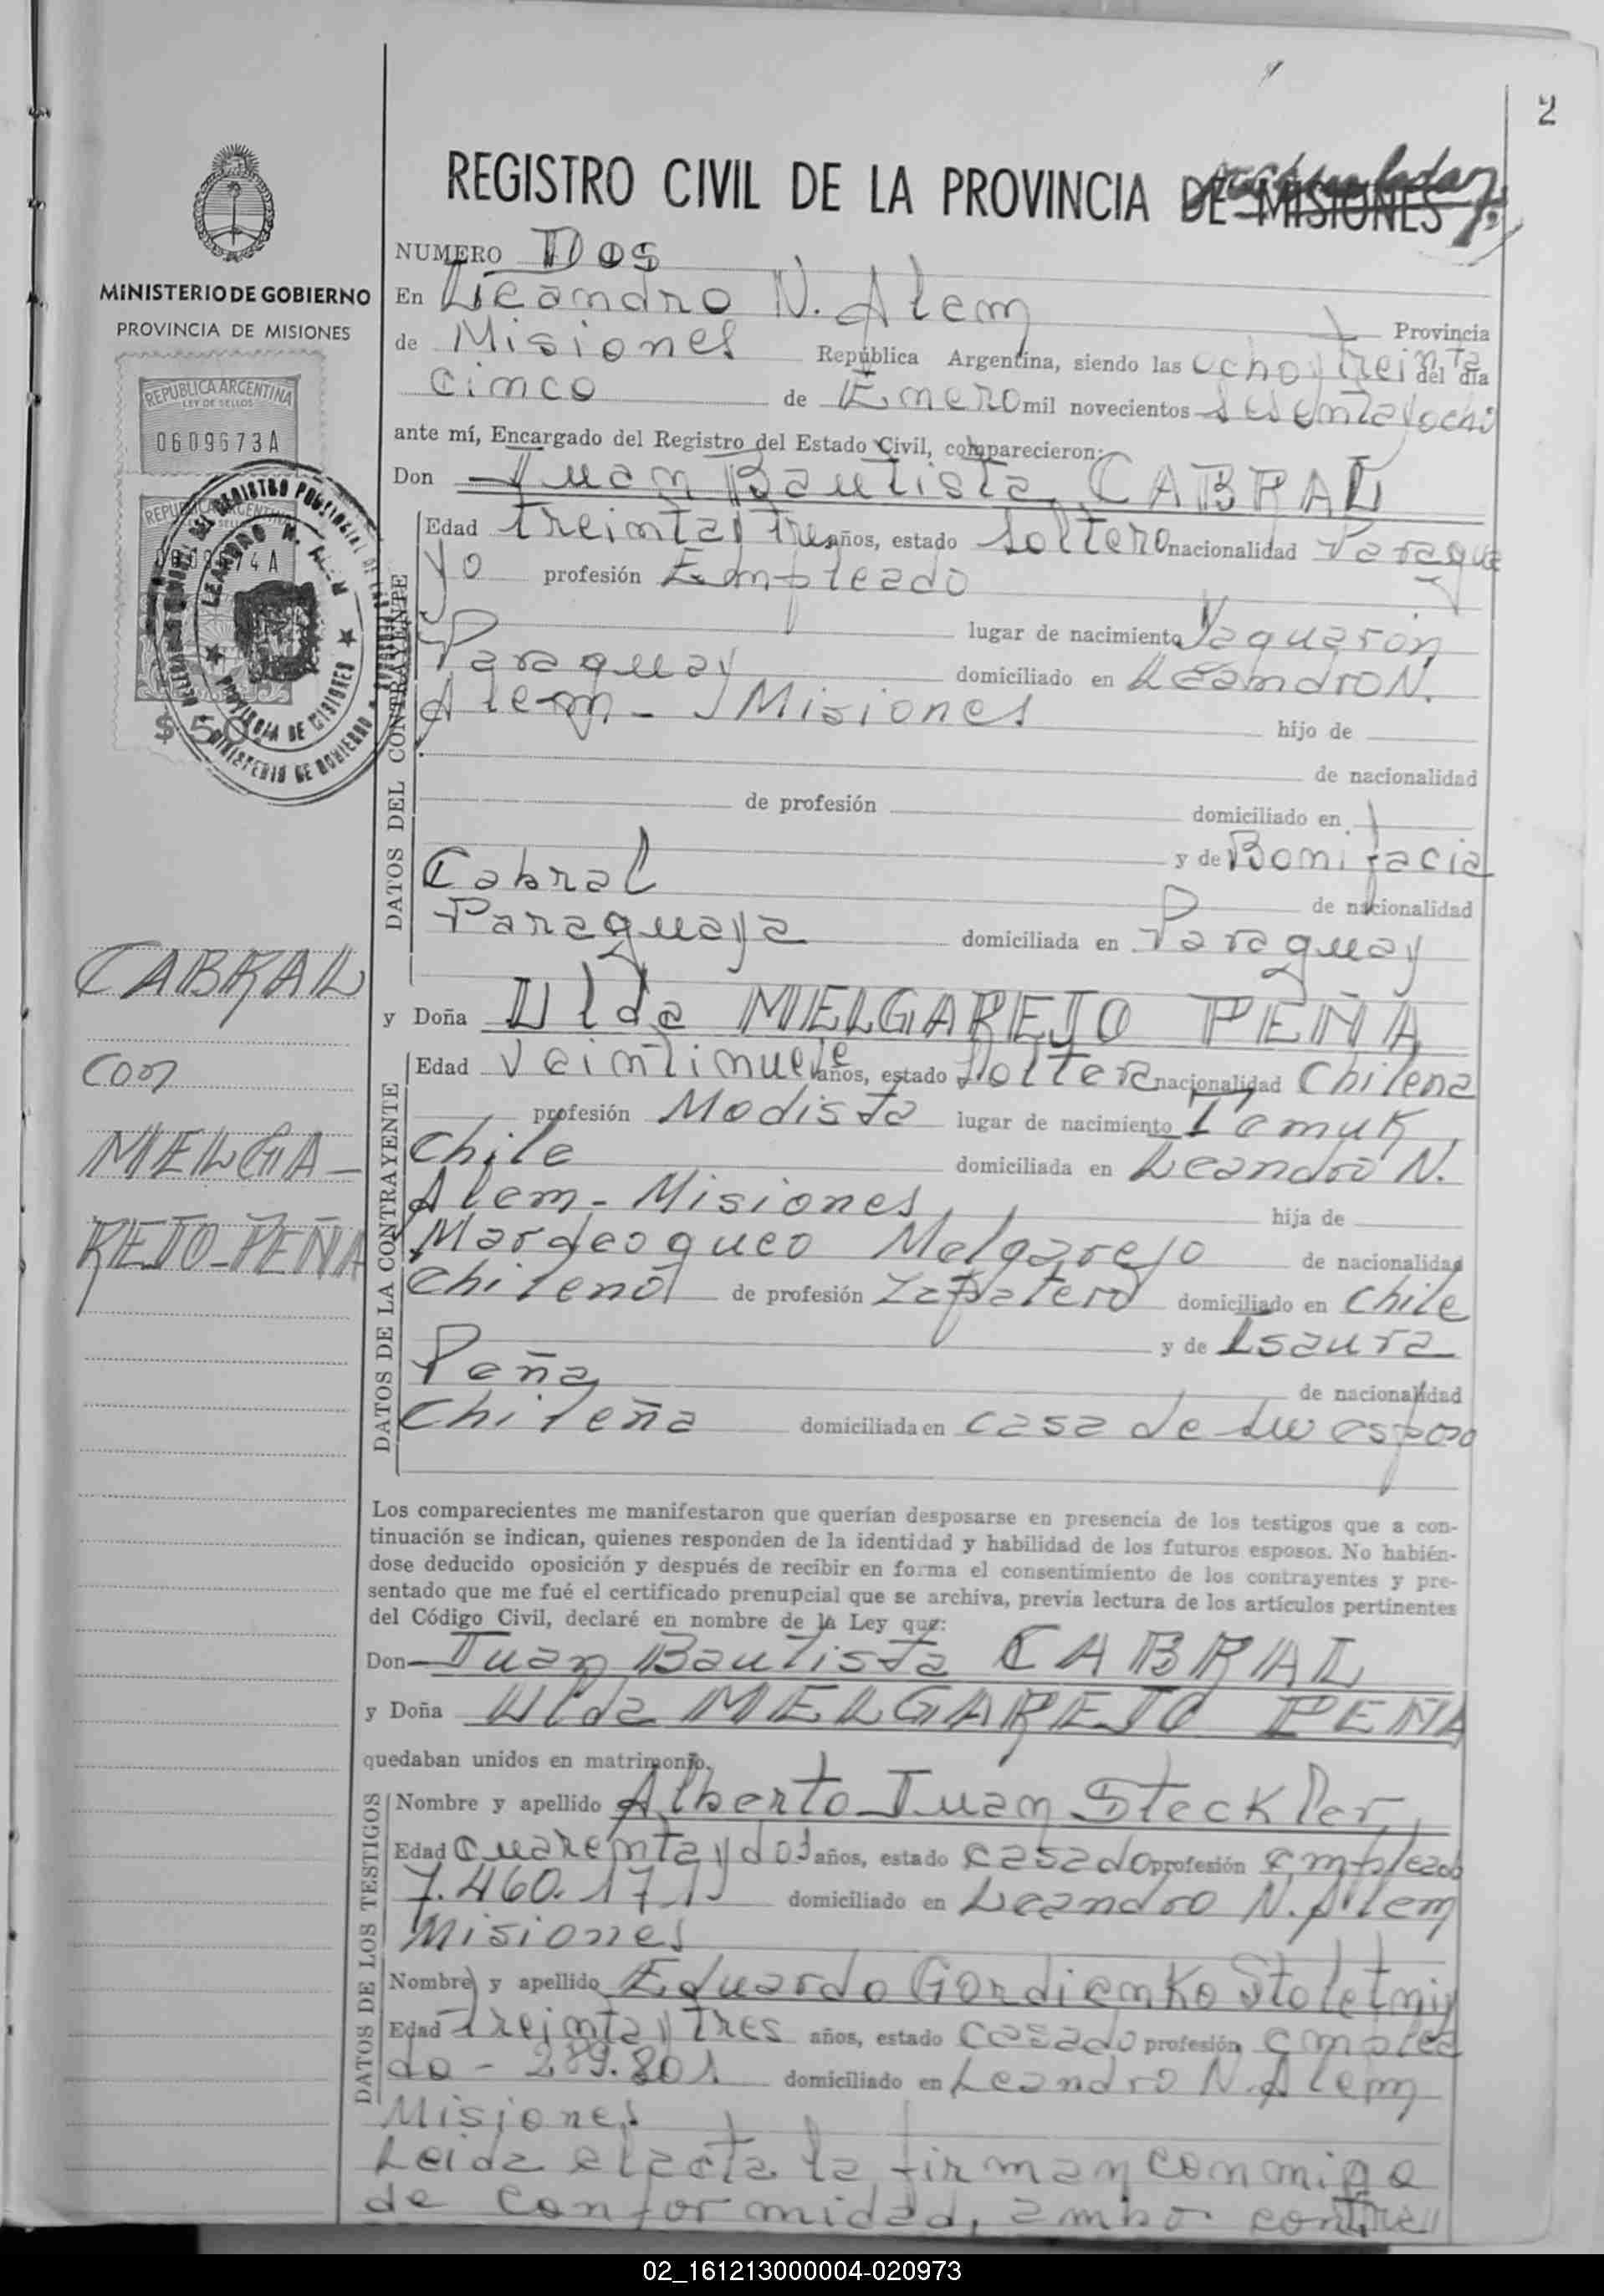 2
REGISTRO CIVIL DE LA PROVINCIA DE MISIONES
MINISTERIO DE GOBIERNO
PROVINCIA DE MISIONES
REPUBLICA ARGENTINA
LEY DE SELLOS
0609673A
$ 50
NUMERO Dos
En Leandro N. Alem Provincia
de Misiones República Argentina, siendo las ocho y treinta del día
cinco de Enero mil novecientos sesenta y ocho
ante mí, Encargado del Registro del Estado Civil, comparecieron:
Don Juan Bautista CABRAL
DATOS DEL CONTRAYENTE
Edad treinta y tres años, estado soltero nacionalidad Paragua
yo profesión Empleado
lugar de nacimiento Yaguarón
Paraguay domiciliado en Leandro N.
Alem - Misiones hijo de
de nacionalidad
de profesión domiciliado en
y de Bonifacia
Cabral de nacionalidad
Paraguaya domiciliada en Paraguay
CABRAL
con
MELGA-
REJO-PEÑA
y Doña Ilda MELGAREJO PEÑA
DATOS DE LA CONTRAYENTE
Edad Veintinueve años, estado soltera nacionalidad Chilena
profesión Modista lugar de nacimiento Temuk
Chile domiciliada en Leandro N.
Alem - Misiones hija de
Mardeoqueo Melgarejo de nacionalidad
Chileno de profesión Zapatero domiciliado en Chile
y de Isaura
Peña de nacionalidad
Chileña domiciliada en casa de su esposo
Los comparecientes me manifestaron que querían desposarse en presencia de los testigos que a con-
tinuación se indican, quienes responden de la identidad y habilidad de los futuros esposos. No habién-
dose deducido oposición y después de recibir en forma el consentimiento de los contrayentes y pre-
sentado que me fué el certificado prenupcial que se archiva, previa lectura de los artículos pertinentes
del Código Civil, declaré en nombre de la Ley que:
Don Juan Bautista CABRAL
y Doña Ilda MELGAREJO PEÑA
quedaban unidos en matrimonio.
DATOS DE LOS TESTIGOS
Nombre y apellido Alberto Juan Steckler
Edad cuarenta y dos años, estado casado profesión empleado
7.460.171 domiciliado en Leandro N. Alem
Misiones
Nombre y apellido Eduardo Gordienko Stoletniy
Edad Treinta y Tres años, estado casado profesión emplea
do - 289.801 domiciliado en Leandro N. Alem
Misiones
Leida el acta la firman conmigo
de conformidad, ambo contra
02_161213000004-020973